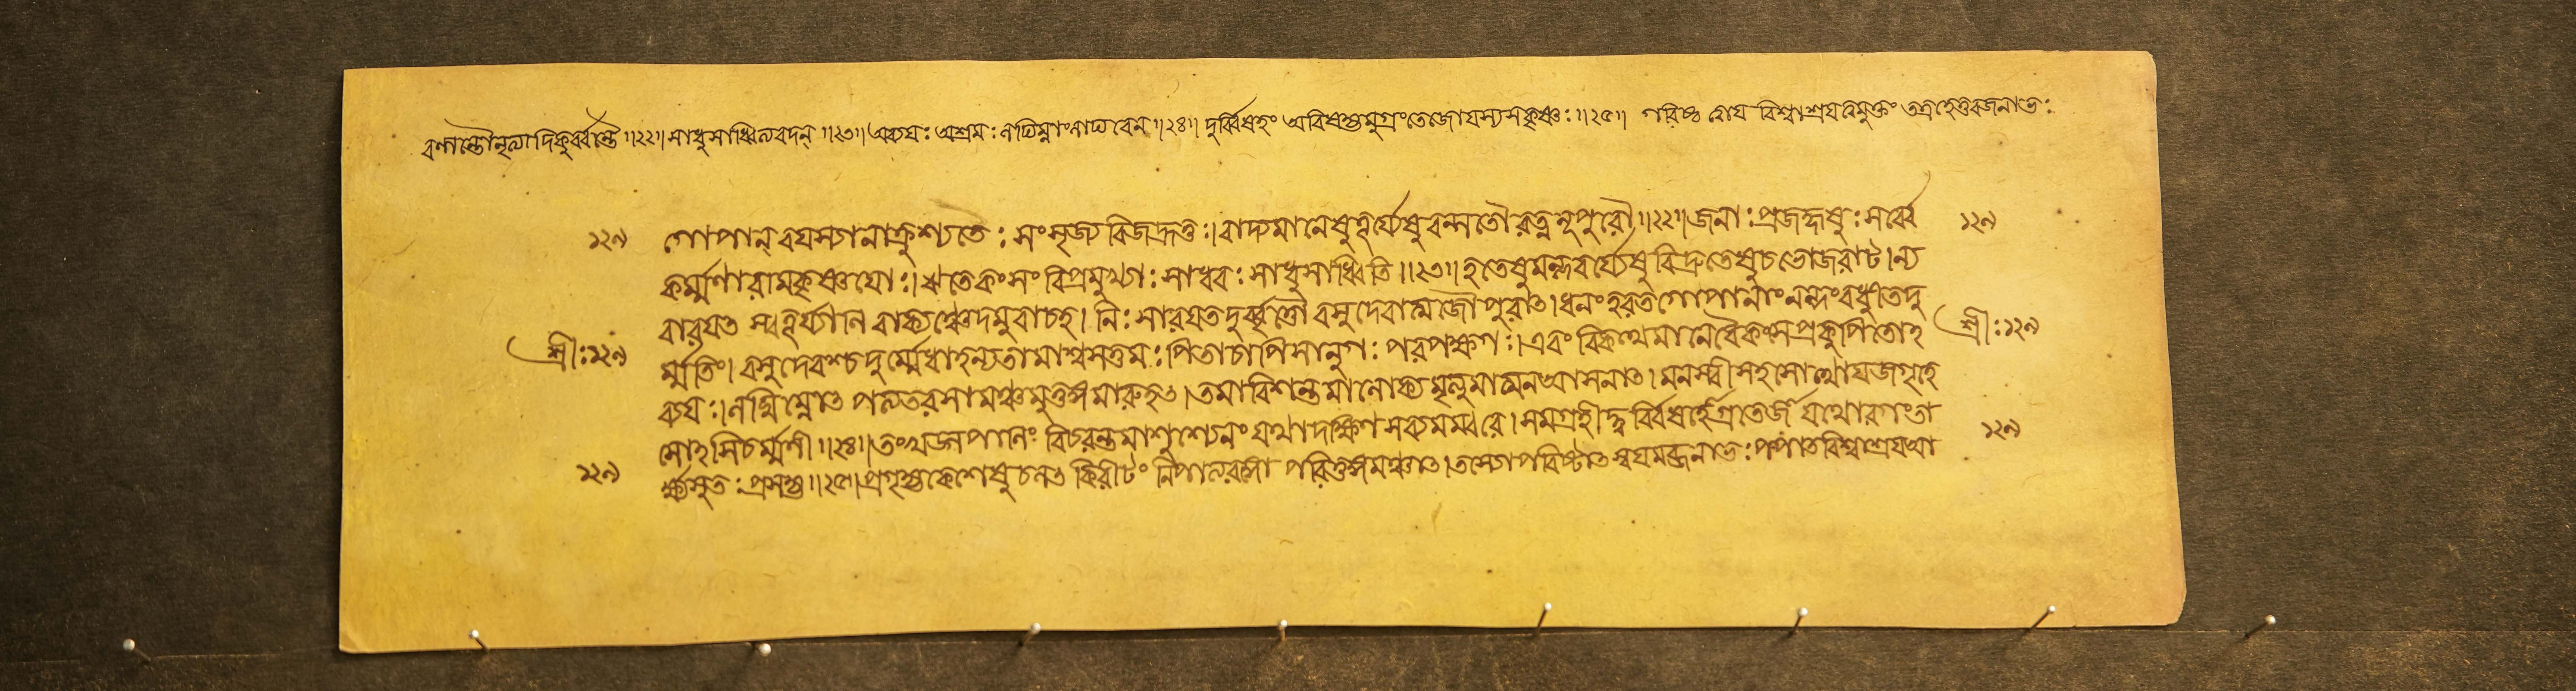 বলান্তৌনৃত্যাদিকুর্বন্তৌ ॥২২॥ সাধুসাধ্বিত্যবদন্ ॥২৩॥ অব্যয়ঃ অশ্রমঃ লঘিম্নালাঘবেন ॥২৪॥ দুর্ব্বিষহং অবিষহ্যমুগ্রংতেজোযস্যসকৃষ্ণঃ ॥২৫॥ বিশ্বাশ্রয়
১২৯ গোপান্ বয়স্যানাকৃশ্যতৈঃ সংসৃজ্য বিজহ্রতুঃ। বাদ্যমানেষুতূর্য্যেষুবল্গতৌ রুতনূপুরৌ ॥২২॥ জনাঃ প্রজহৃষুঃ সর্ব্বে ১২৯
কর্ম্মণারামকৃষ্ণয়োঃ। ঋতেকংসং বিপ্রমুখ্যাঃ সাধবঃ সাধুসাধ্বিতি ॥২৩॥ হতেষুমল্লবর্য্যেষু বিদ্রুতেষুচভোজরাট। ন্য
বারয়ৎ স্বতূর্য্যানি বাক্যঞ্চেদমুবাচহ। নিঃসারয়তদুর্বৃত্তৌ বসুদেবাত্মজৌ পুরাৎ। ধনংহরতগোপানাংনন্দংবধ্নীতদু
শ্রীঃ ১২৯ র্ম্মতিং। বসুদেবশ্চদুর্ম্মেধাহন্যতামাশ্বসত্তমঃ পিতাচাপিসানুগঃ পরপক্ষগঃ। এবং বিকত্থমানেবৈকংসেপ্রকুপিতোহ শ্রীঃ ১২৯
ব্যয়ঃ। লঘিম্নোৎপত্যতরসামঞ্চমুত্তুঙ্গমারুহৎ। তমাবিশন্তমালোক্য মৃত্যুমাত্মনআসনাৎ। মনস্বীসহসোত্থায়জগৃহে
সোহসিচর্ম্মণী ॥২৪॥ তংখড়্গপানিং বিচরন্তমাশুশ্যেনং যথাদক্ষিণসব্যমম্বরে। সমগ্রহীদ্দুর্বিষহোগ্রতেজা যথোরগংতা
১২৯ র্ক্ষ্যসুতঃ প্রসহ্য ॥২৫॥ প্রগৃহ্যকেশেষুচলৎ কিরীটং নিপাত্যরঙ্গো পরিতুঙ্গমঞ্চাৎ। তস্যোপরিষ্টাৎস্বয়মব্জনাভঃ পপাতবিশ্বাশ্রয়আ ১২৯